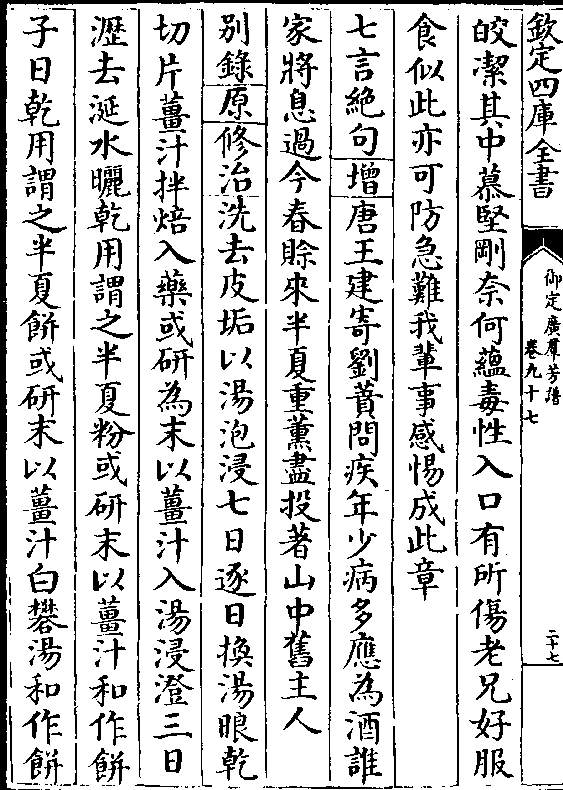 欽定四庫全書
御定廣羣芳譜
卷九十七
二十七
皎潔其中慕堅剛奈何蘊毒性入口有所傷老兄好服
食似此亦可防急難我軰事感惕成此章
七言絶句增唐王建寄劉蕡問疾年少病多應為酒誰
家將息過今春賒來半夏重薰盡投著山中舊主人
别錄原修治洗去皮垢以湯泡浸七日逐日換湯晾乾
切片薑汁拌焙入藥或研為末以薑汁入湯浸澄三日
瀝去涎水曬乾用謂之半夏粉或研末以薑汁和作餅
子日乾用謂之半夏餅或研末以薑汁白礬湯和作餅